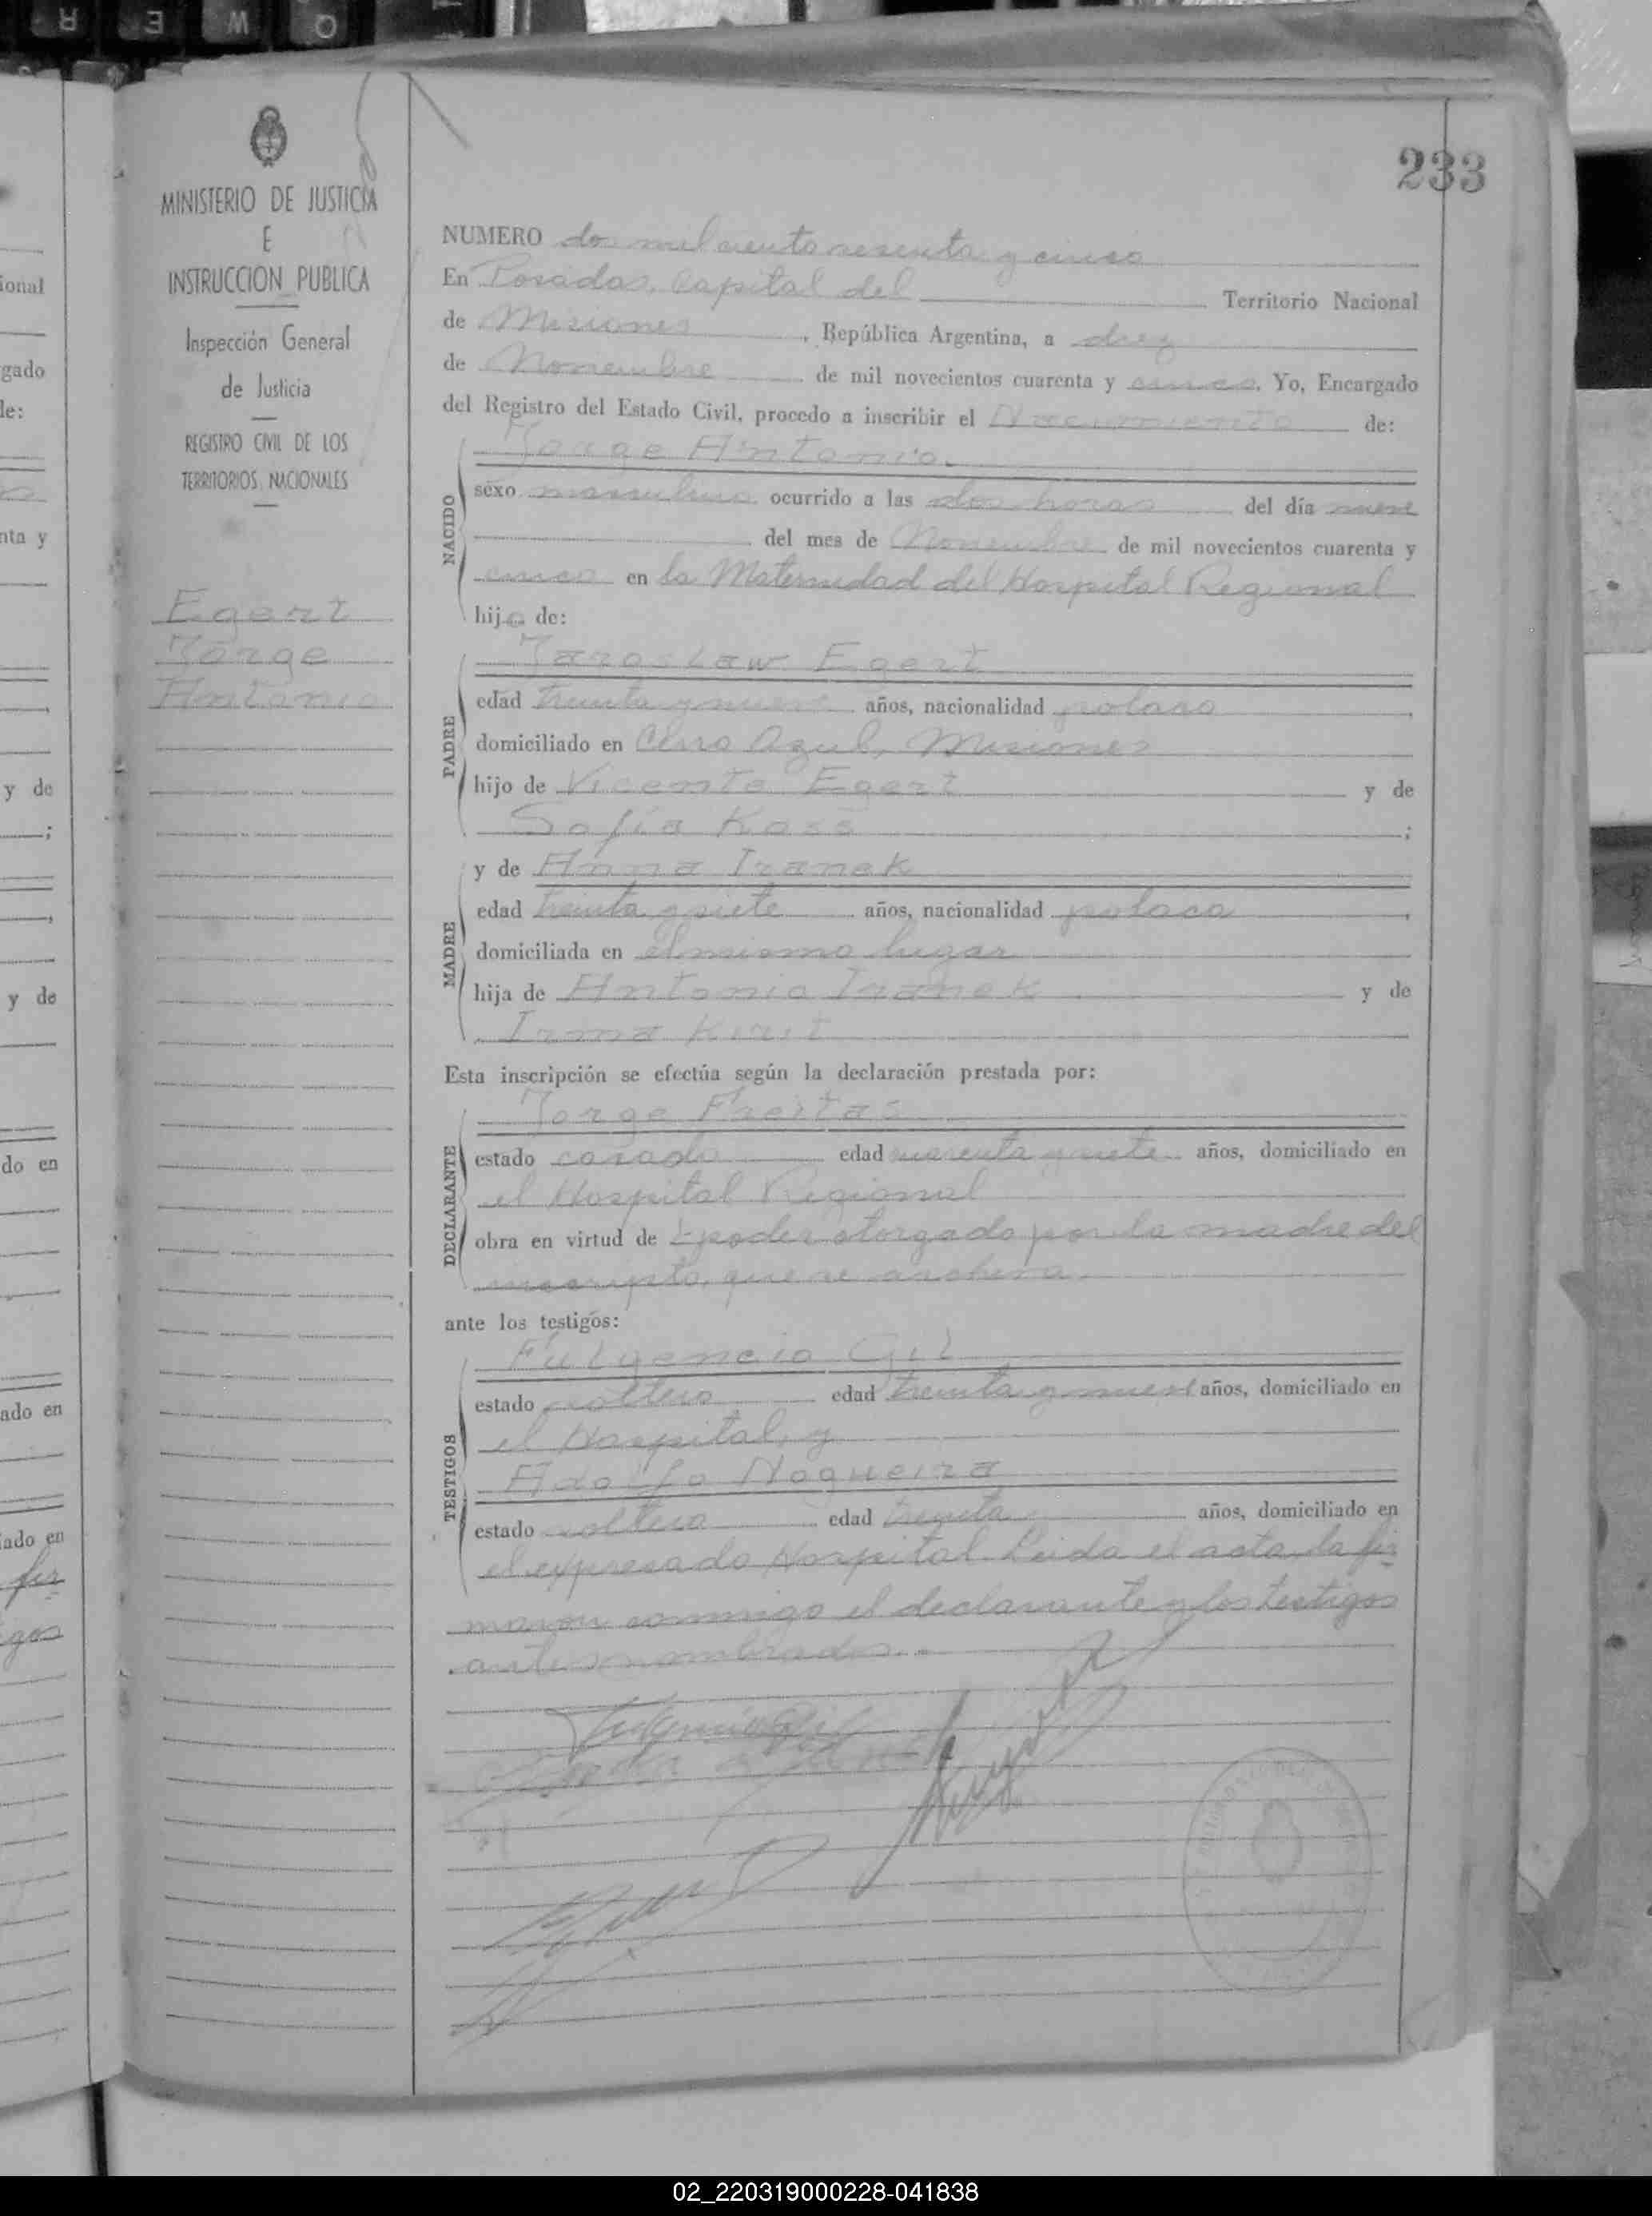 R E W Q
233
MINISTERIO DE JUSTICIA
E
INSTRUCCION PUBLICA
Inspección General
de Justicia
REGISTRO CIVIL DE LOS
TERRITORIOS NACIONALES
Egert
Jorge
Antonio
NUMERO dos mil ciento sesenta y cinco
En Posadas, Capital del Territorio Nacional
de Misiones, República Argentina, a diez
de Noviembre de mil novecientos cuarenta y cinco. Yo, Encargado
del Registro del Estado Civil, procedo a inscribir el Nacimiento de:
Jorge Antonio.
NACIDO
sexo masculino ocurrido a las dos horas del día nueve
del mes de Noviembre de mil novecientos cuarenta y
cinco en la Maternidad del Hospital Regional
hijo de:
Jaroslaw Egert
PADRE
edad treinta y nueve años, nacionalidad polaco
domiciliado en Cerro Azul, Misiones
hijo de Vicente Egert y de
Sofía Koss;
y de Anna Iranek
MADRE
edad treinta y siete años, nacionalidad polaca,
domiciliada en el mismo lugar
hija de Antonio Iranek y de
Irma Kirit
Esta inscripción se efectúa según la declaración prestada por:
Jorge Freitas
DECLARANTE
estado casado edad cuarenta y siete años, domiciliado en
el Hospital Regional
obra en virtud de poder otorgado por la madre del
inscripto, que se archiva.
ante los testigos:
Fulgencio Gil
TESTIGOS
estado soltero edad treinta y nueve años, domiciliado en
el Hospital, y
Adolfo Nogueira
estado soltero edad treinta años, domiciliado en
el expresado Hospital. Leida el acta, la fir
maron conmigo el declarante y los testigos
antes nombrados.
Fulgencio Gil
ional
gado
de:
nta y
y de
;
,
y de
do en
ado en
iado en
fir
gos
02_220319000228-041838